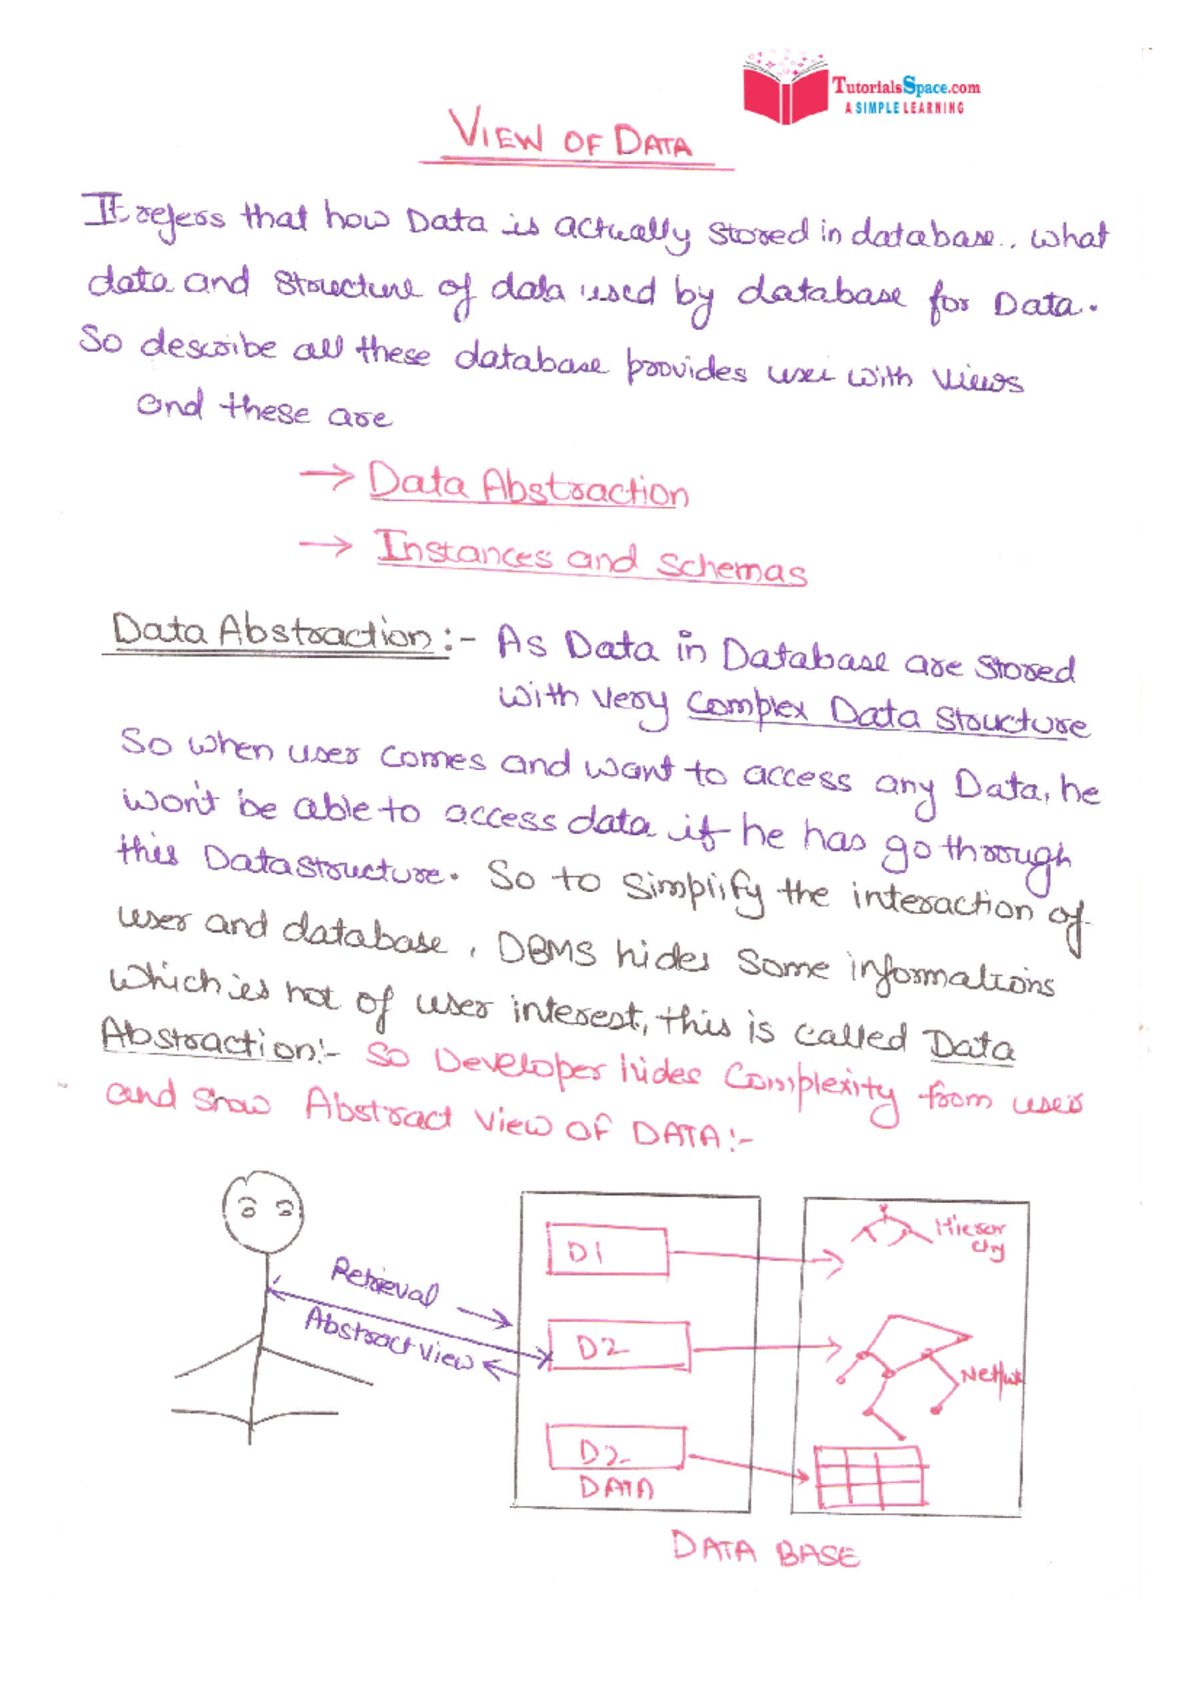 TutorialsSpace.com
A SIMPLE LEARNING
VIEW OF DATA
It refers that how Data is actually stored in database, what
data and structure of data used by database for Data.
So describe all these database provides user with views
and these are
→ Data Abstraction
→ Instances and schemas
Data Abstraction :- As Data in Database are stored
with very complex Data structure
So when user comes and want to access any Data, he
won't be able to access data if he has go through
this Datastructure. So to simplify the interaction of
user and database, DBMS hides some informations
which is not of user interest, this is called Data
Abstraction:- So Developer hides complexity from user
and show Abstract view of DATA:-
Retrieval
Abstract view
D1
D2
D2
DATA
Hierar
chy
Netwk
DATA BASE